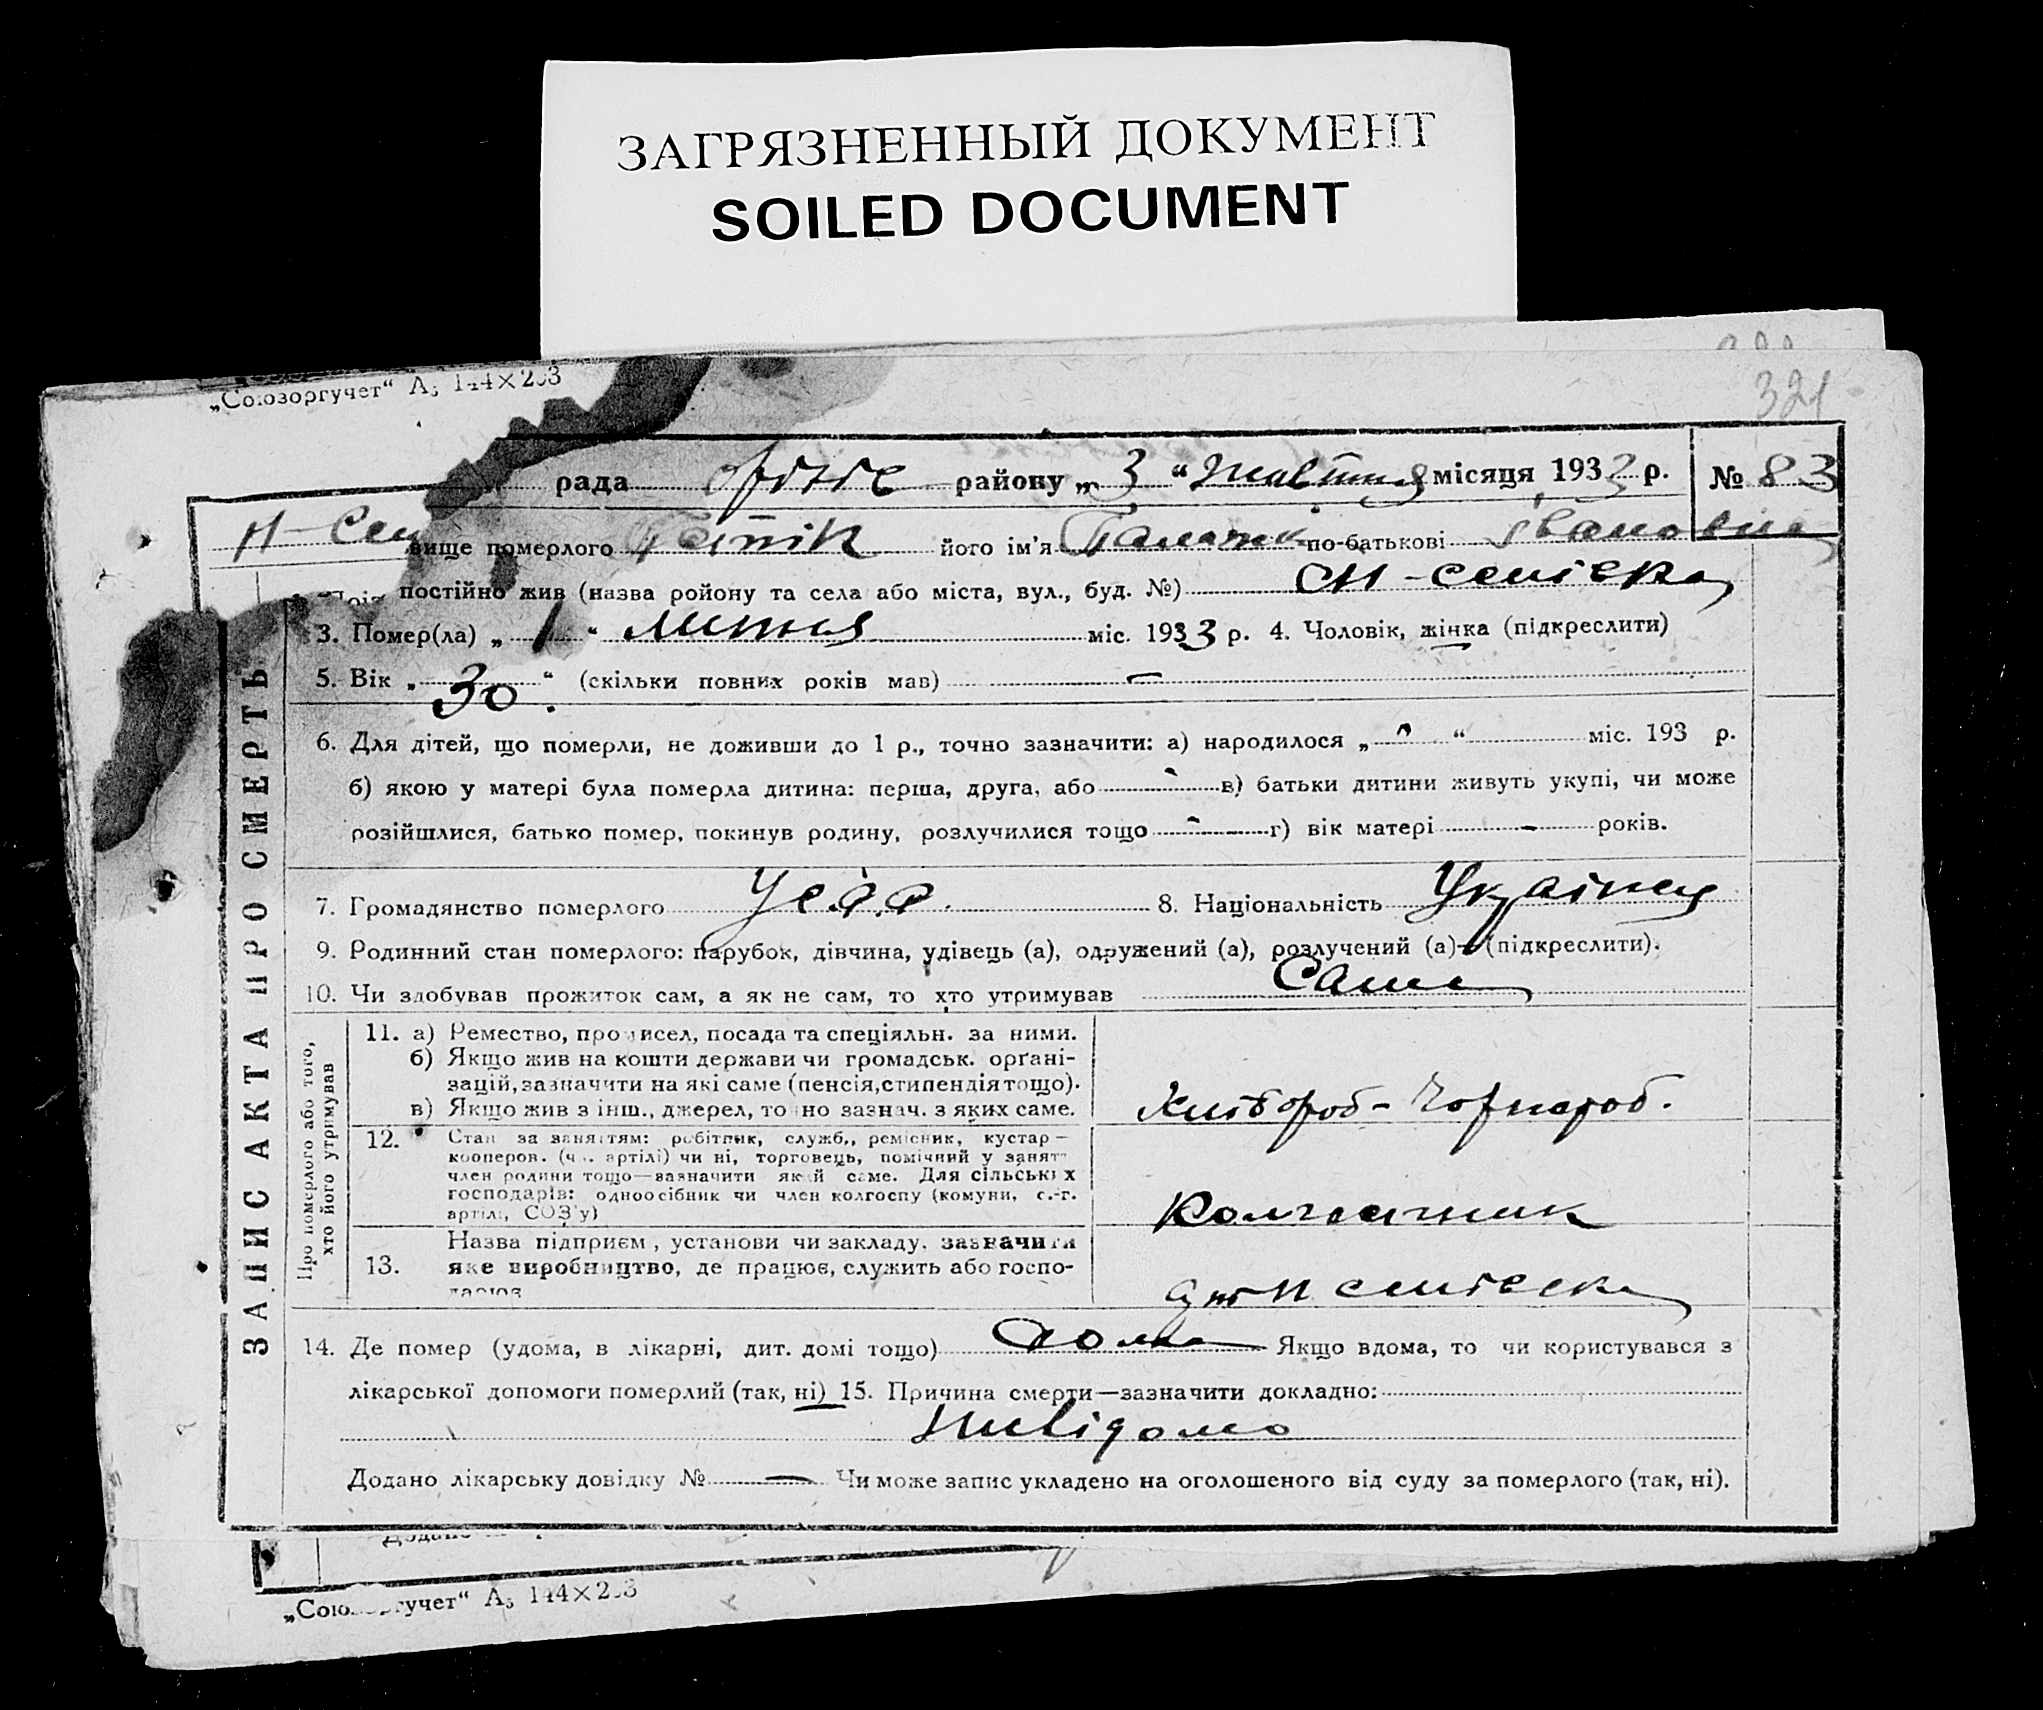 ЗАГРЯЗНЕННЫЙ ДОКУМЕНТ
SOILED DOCUMENT
321
„Союзоргучет“ А₅ 144×203
рада району „ 3 “ Жовтня місяця 1933 р. № 83
вище померлого його ім'я по-батькові Івановна
постійно жив (назва ройону та села або міста, вул., буд. №)
3. Помер(ла) „ 1 “ міс. 1933 р. 4. Чоловік, жінка (підкреслити)
5. Вік „ 30 “ (скільки повних років мав) —
6. Для дітей, що померли, не доживши до 1 р., точно зазначити: а) народилося „ “ міс. 193 р.
б) якою у матері була померла дитина: перша, друга, або в) батьки дитини живуть укупі, чи може
розійшлися, батько помер, покинув родину, розлучилися тощо г) вік матері - років.
7. Громадянство померлого 8. Національність Українец
9. Родинний стан померлого: парубок, дівчина, удівець (а), одружений (а), розлучений (а) (підкреслити).
10. Чи здобував прожиток сам, а як не сам, то хто утримував Сама
ЗАПИС АКТА ПРО СМЕРТЬ
Про померлого або того,
хто його утримував
11. а) Ремество, промисел, посада та спеціяльн. за ними.
б) Якщо жив на кошти держави чи громадськ. орґані-
зацій, зазначити на які саме (пенсія, стипендія тощо).
в) Якщо жив з інш., джерел, то но зазнач. з яких саме.
Хлібороб - Чорнороб.
12. Стан за заняттям: робітник, служб., ремісник, кустар —
кооперов. (ч. артілі) чи ні, торговець, помічний у занят
член родини тощо—зазначити який саме. Для сільських
господарів: одноосібник чи член колгоспу (комуни, с.-г.
артілі, СОЗ'у)
Колгоспник
13. Назва підприєм, установи чи закладу. зазначити
яке виробництво, де працює, служить або госпо-
дарює
14. Де помер (удома, в лікарні, дит. домі тощо) дома Якщо вдома, то чи користувався з
лікарської допомоги померлий (так, ні) 15. Причина смерти—зазначити докладно:
Нивідомо
Додано лікарську довідку № — Чи може запис укладено на оголошеного від суду за померлого (так, ні).
Додано
„Союзоргучет“ А₅ 144×203